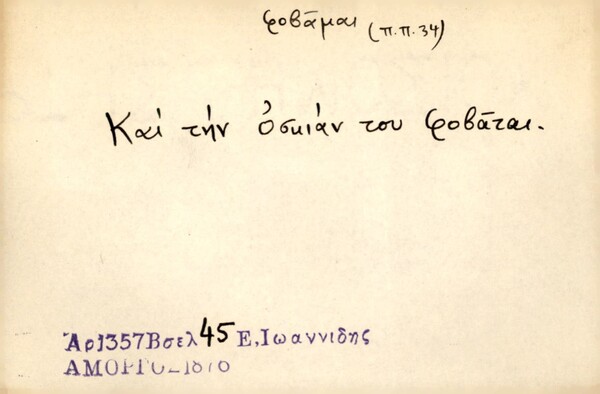 φοβᾶμαι (π.π.34)
Καί τήν ὀσκιάν του φοβᾶται.
Ἀρ1357Βσελ45 Ε,Ιωαννιδης
ΑΜΟΡΓΟΣ1876